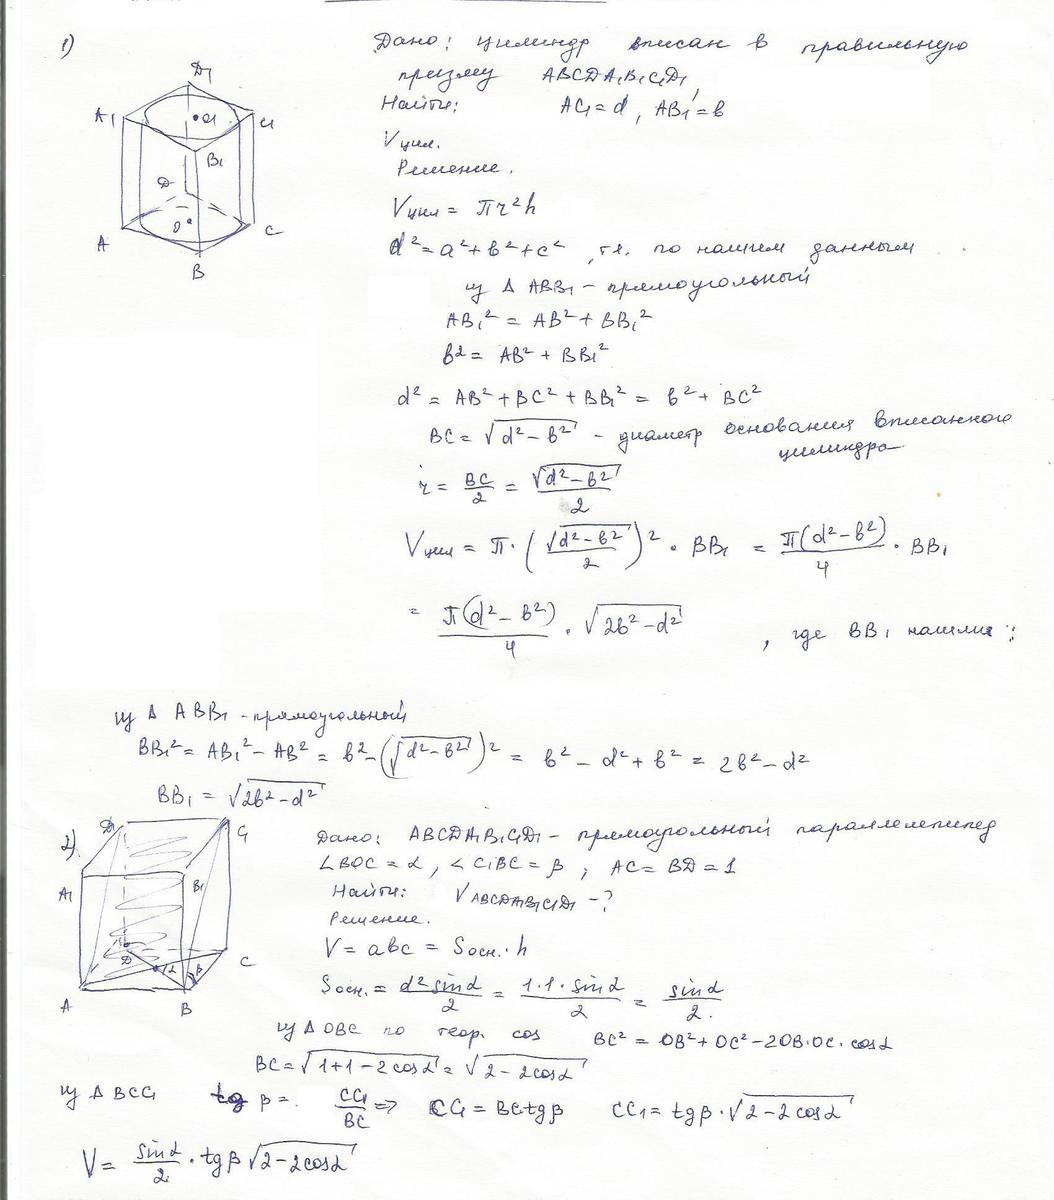 1)
Дано: цилиндр вписан в правильную
призму ABCDA₁B₁C₁D₁,
Найти: AC₁ = d, AB₁ = b
Vцил.
Решение.
Vцил = πr²h
d² = a² + b² + c², т.е. по нашим данным
из Δ ABB₁ - прямоугольный
AB₁² = AB² + BB₁²
b² = AB² + BB₁²
d² = AB² + BC² + BB₁² = b² + BC²
BC = √(d² - b²) - диаметр основания вписанного
цилиндра
r = BC/2 = √(d² - b²)/2
Vцил = π · (√(d² - b²)/2)² · BB₁ = π(d² - b²)/4 · BB₁
= π(d² - b²)/4 · √(2b² - d²), где BB₁ нашли:
из Δ ABB₁ - прямоугольный
BB₁² = AB₁² - AB² = b² - (√(d² - b²))² = b² - d² + b² = 2b² - d²
BB₁ = √(2b² - d²)
D₁
A₁
O₁
C₁
B₁
D
O
A
C
B
2)
Дано: ABCDA₁B₁C₁D₁ - прямоугольный параллелепипед
∠BOC = α, ∠C₁BC = β; AC = BD = 1
Найти: VABCDA₁B₁C₁D₁ - ?
Решение.
V = abc = Sосн. · h
Sосн. = d² sin α/2 = 1·1· sin α/2 = sin α/2.
из Δ OBC по теор. cos BC² = OB² + OC² - 2OB·OC· cos α
BC = √(1 + 1 - 2cos α) = √(2 - 2cos α)
из Δ BCC₁ tg β = CC₁/BC ⇒ CC₁ = BC tg β CC₁ = tg β · √(2 - 2 cos α)
V = sin α/2 · tg β √(2 - 2cos α)
D₁
C₁
A₁
B₁
D
α
β
C
A
B